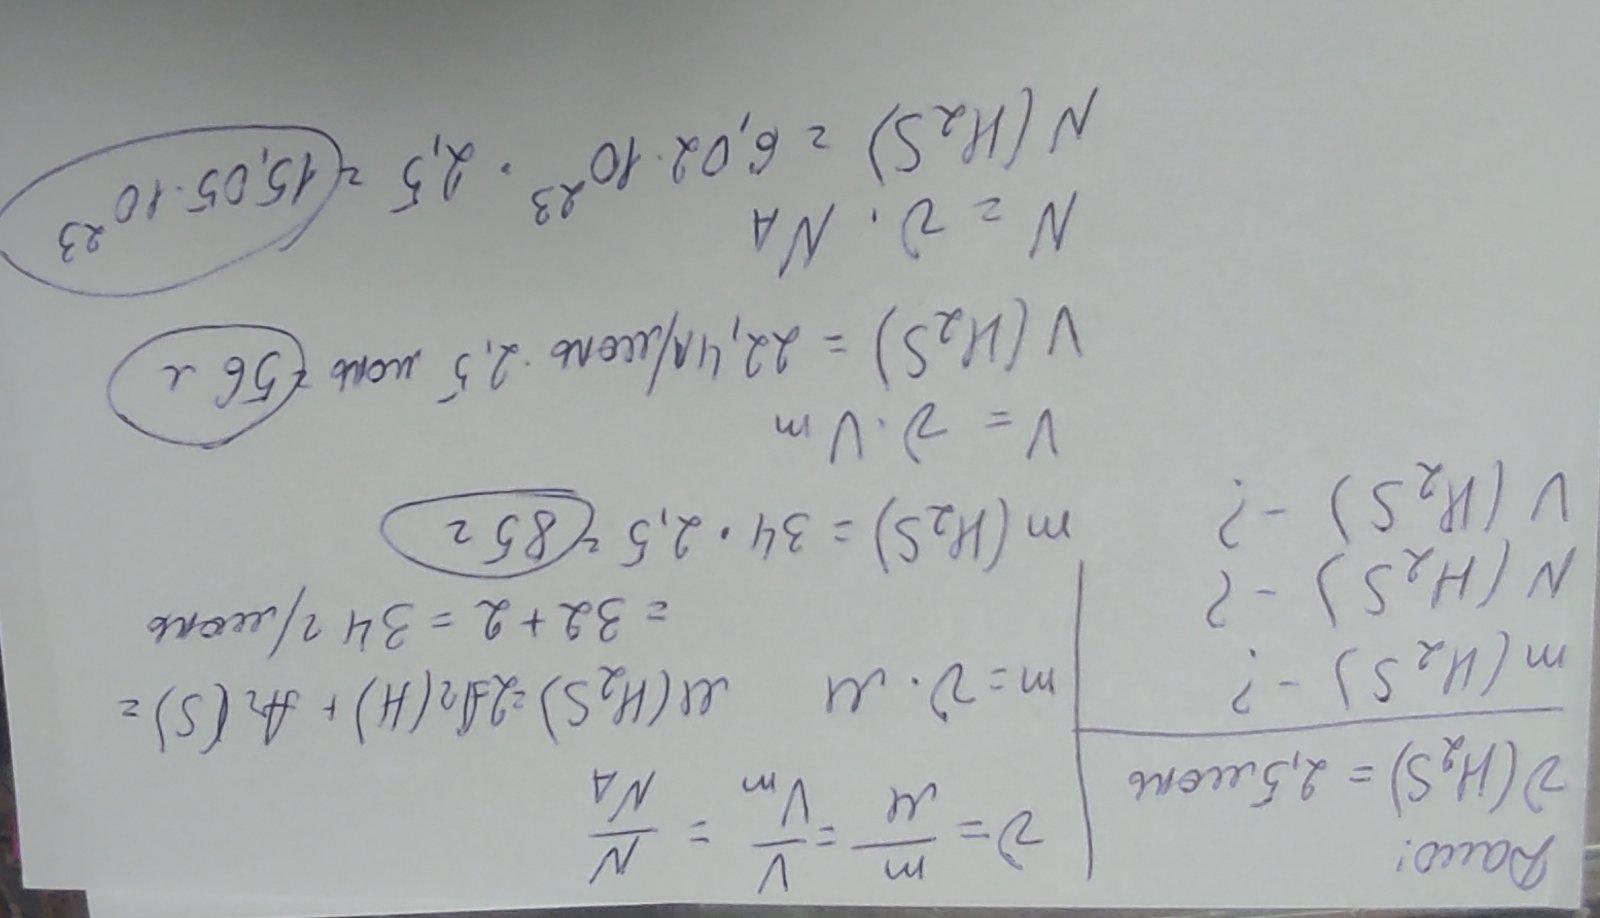 Дано:
ν(H₂S) = 2,5 моль
m(H₂S) - ?
N(H₂S) - ?
V(H₂S) - ?
ν = m/M = V/Vm = N/NA
m = ν · M M(H₂S) = 2Ar(H) + Ar(S) =
= 32 + 2 = 34 г/моль
m(H₂S) = 34 · 2,5 = 85 г
V = ν · Vm
V(H₂S) = 22,4 л/моль · 2,5 моль = 56 л
N = ν · NA
N(H₂S) = 6,02 · 10²³ · 2,5 = 15,05 · 10²³